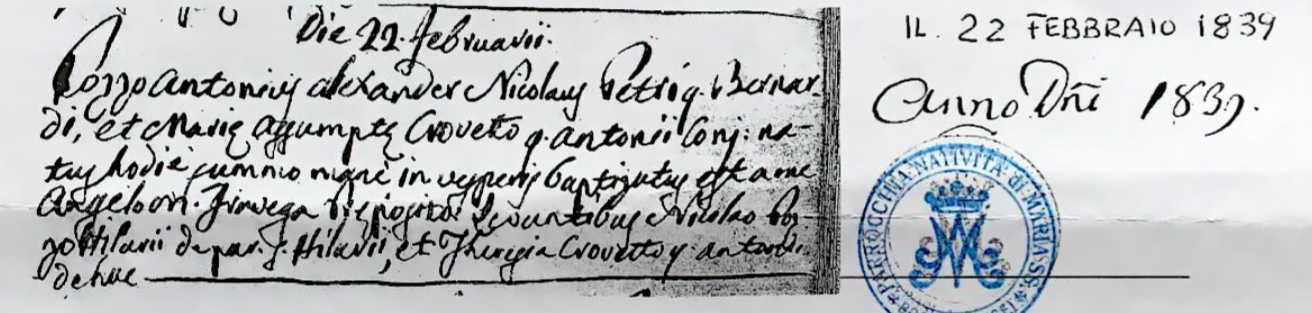 Die 22. februarii.
Bozzo Antonius Alexander Nicolaus Petri q. Bernar-
di, et Marię Assumptę Crovetto q. Antonii Conj: na-
tus hodie summo mane in vesperis baptizatus est a me
Angelo
Nicolao Boz-
zo Hilarii de par. S. Hilarii, et Theresia Crovetto q. Antonii
de hac
IL. 22 FEBBRAIO 1839
Anno Dñi 1839.
PARROCCHIA NATIVITÀ di MARIA SS.